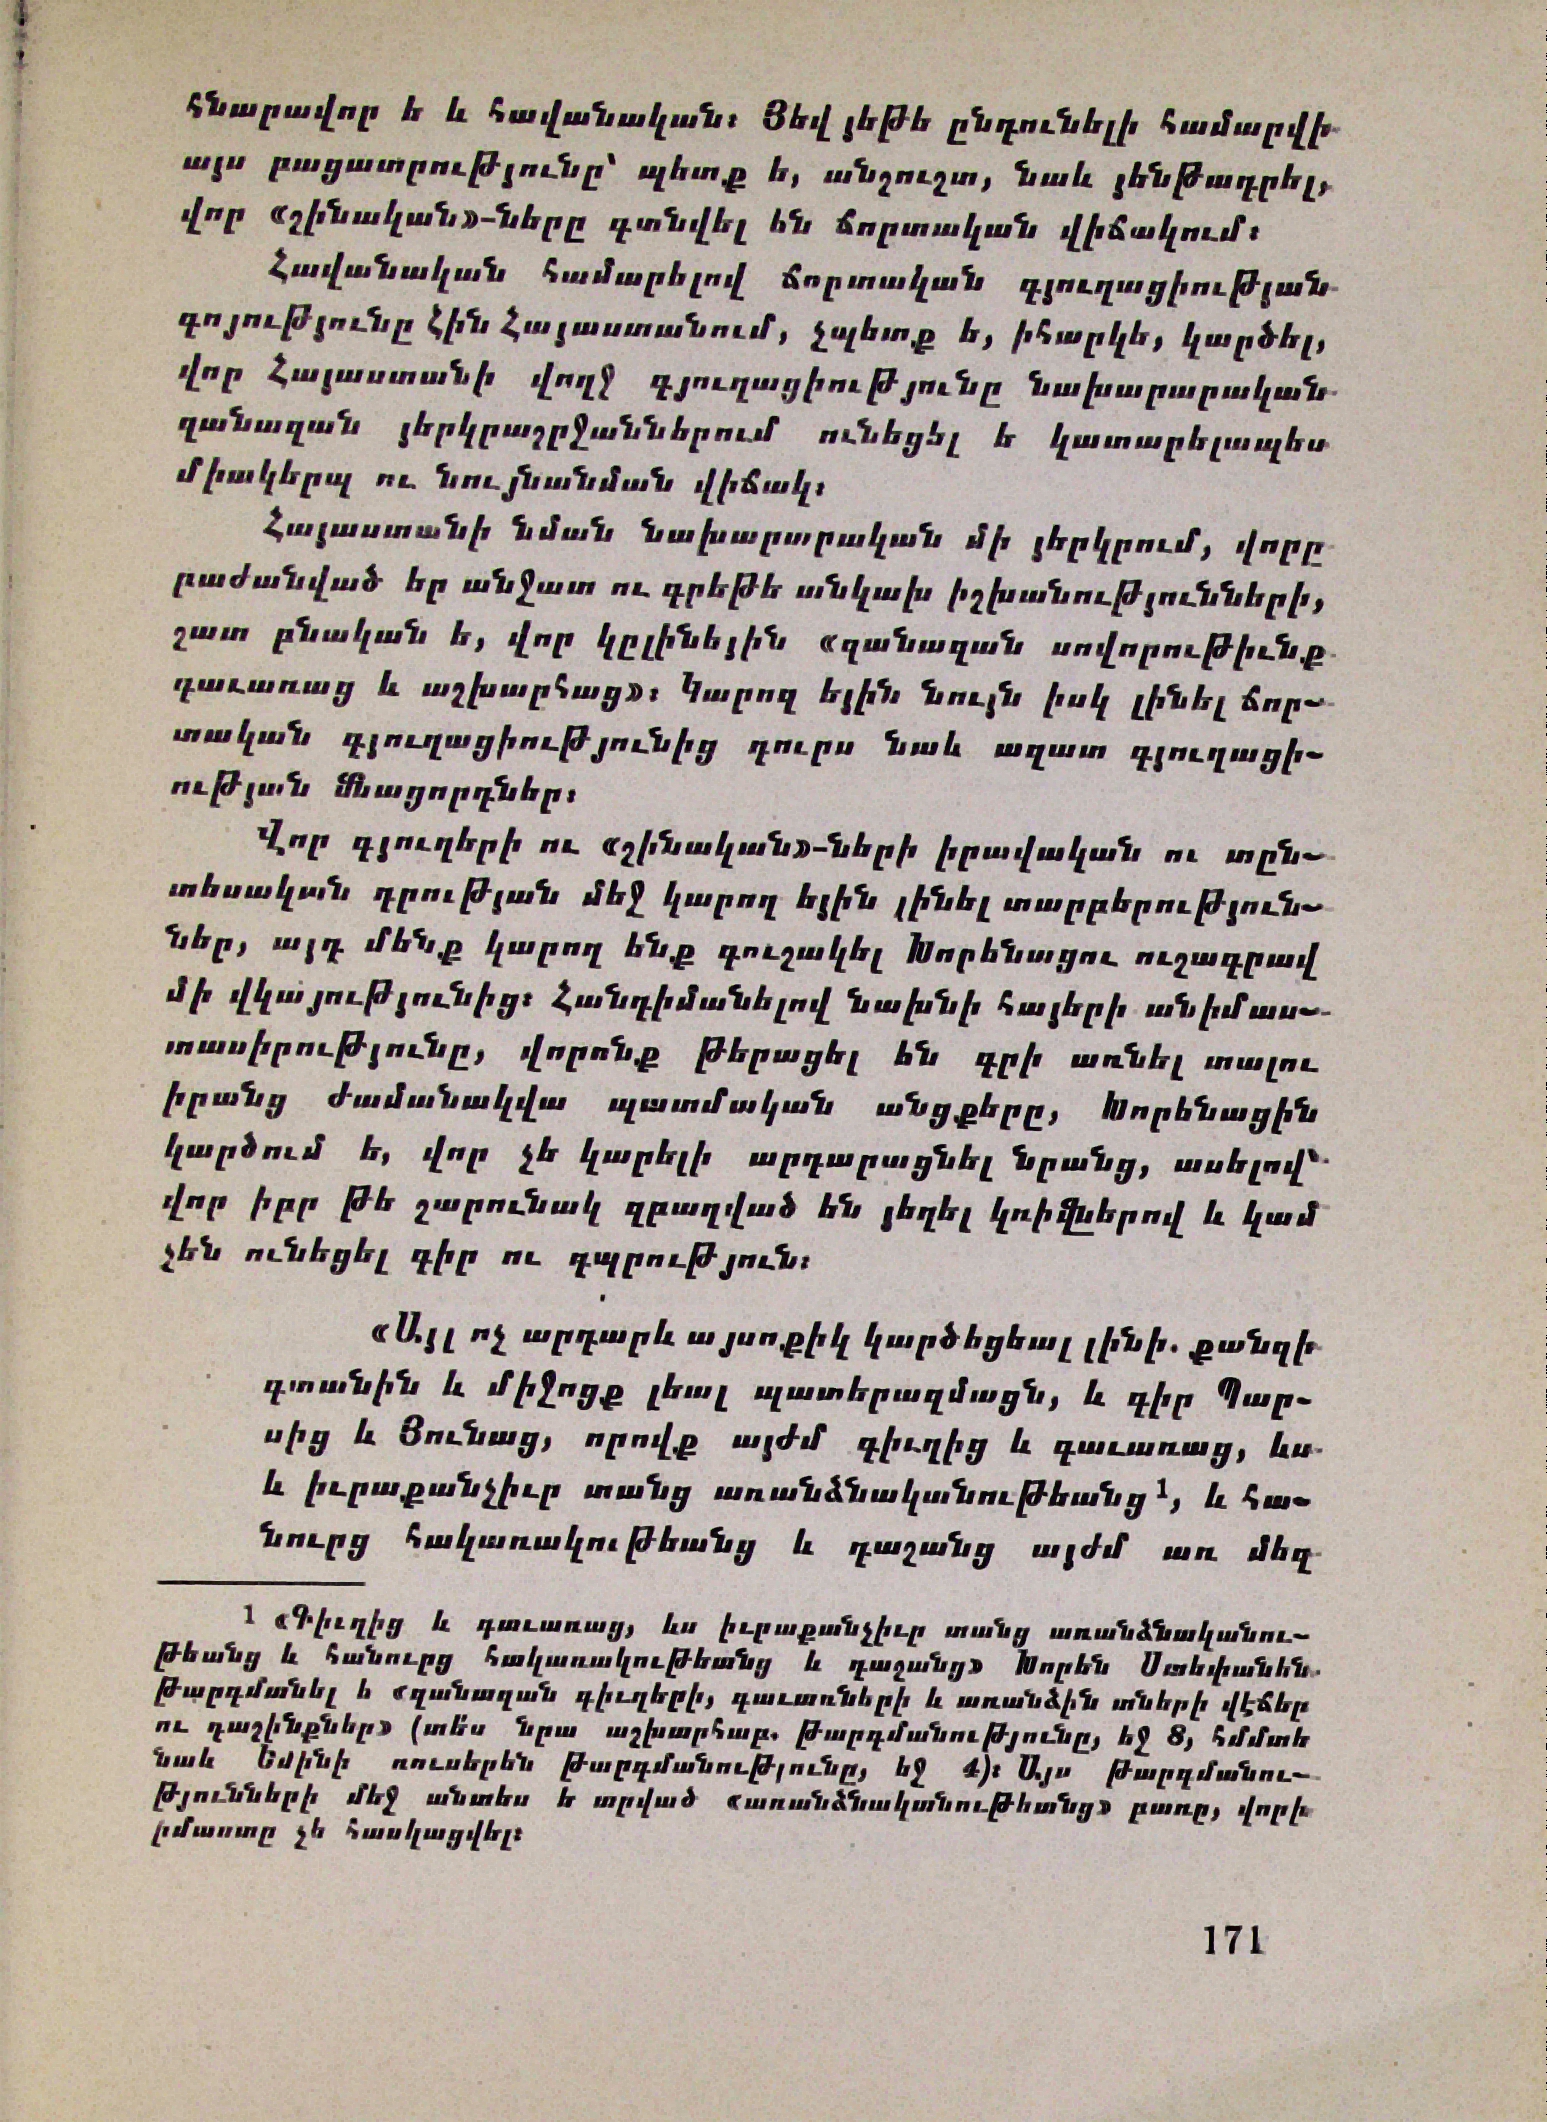 հնարավոր ե և հավանական։ Յեվ յեթե ընդունելի համարվի
այս բացատրությունը՝ պետք ե, անշուշտ, նաև յենթադրել,
վոր «շինական»-ները գտնվել են ճորտական վիճակում։
Հավանական համարելով ճորտական գյուղացիության
գոյությունը Հին Հայաստանում, չպետք ե, իհարկե, կարծել,
վոր Հայաստանի վողջ գյուղացիությունը նախարարական
զանազան յերկրաշրջաններում ունեցել ե կատարելապես
միակերպ ու նույնանման վիճակ։
Հայաստանի նման նախարարական մի յերկրում, վորը
բաժանված եր անջատ ու գրեթե անկախ իշխանությունների,
շատ բնական ե, վոր կըլինեյին «զանազան սովորութիւնք
գաւառաց և աշխարհաց»։ Կարող եյին նույն իսկ լինել ճոր-
տական գյուղացիությունից դուրս նաև ազատ գյուղացի-
ության մնացորդներ։
Վոր գյուղերի ու «շինական»-ների իրավական ու տըն-
տեսական դրության մեջ կարող եյին լինել տարբերություն-
ներ, այդ մենք կարող ենք գուշակել Խորենացու ուշագրավ
մի վկայությունից։ Հանդիմանելով նախնի հայերի անիմաս-
տասիրությունը, վորոնք թերացել են գրի առնել տալու
իրանց ժամանակվա պատմական անցքերը, Խորենացին
կարծում ե, վոր չե կարելի արդարացնել նրանց, ասելով՝
վոր իբր թե շարունակ զբաղված են յեղել կռիվներով և կամ
չեն ունեցել գիր ու դպրություն։
«Այլ ոչ արդարև այսոքիկ կարծեցեալ լինի. քանզի
գտանին և միջոցք լեալ պատերազմացն, և գիր Պար-
սից և Յունաց, որովք այժմ գիւղից և գաւառաց, ևս
և իւրաքանչիւր տանց առանձնականութեանց¹, և հա-
նուրց հակառակութեանց և դաշանց այժմ առ մեզ
1 «Գիւղից և գաւառաց, ևս իւրաքանչիւր տանց առանձնականու-
թեանց և հանուրց հակառակութեանց և դաշանց» Խորեն Ստեփանեն
թարգմանել ե «զանազան գիւղերի, գաւառների և առանձին տների վէճեր
ու դաշինքներ» (տե՛ս նրա աշխարհաբ. թարգմանությունը, եջ 8, հմմտե
նաև Եմինի ռուսերեն թարգմանությունը, եջ 4)։ Այս թարգմանու-
թյունների մեջ անտես ե արված «առանձնականութեանց» բառը, վորի
իմաստը չե հասկացվել։
171